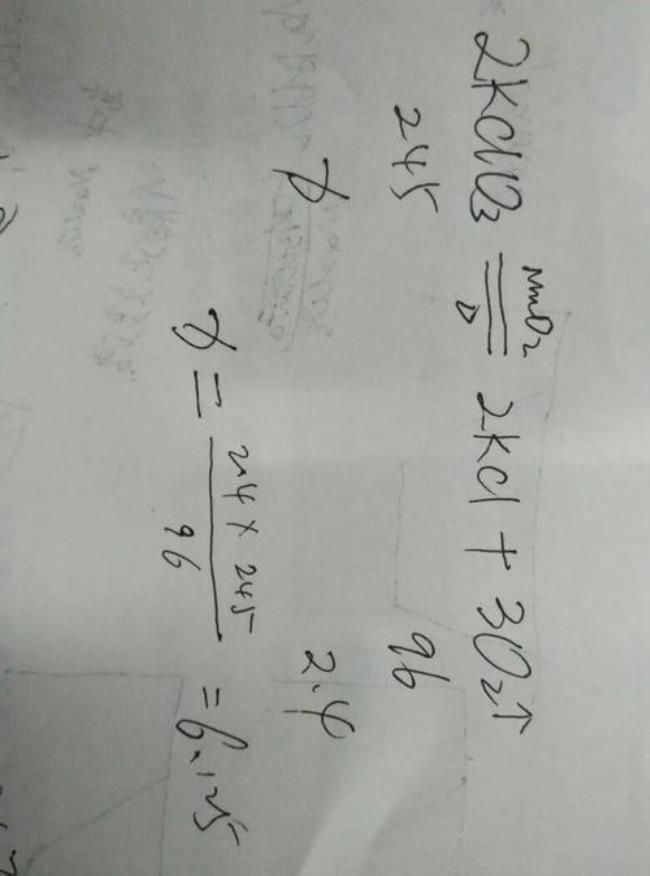 2KClO₃ MnO₂ ══ △ 2KCl + 3O₂↑
245 96
x 2.4
x = 2.4 × 245 / 96 = 6.125